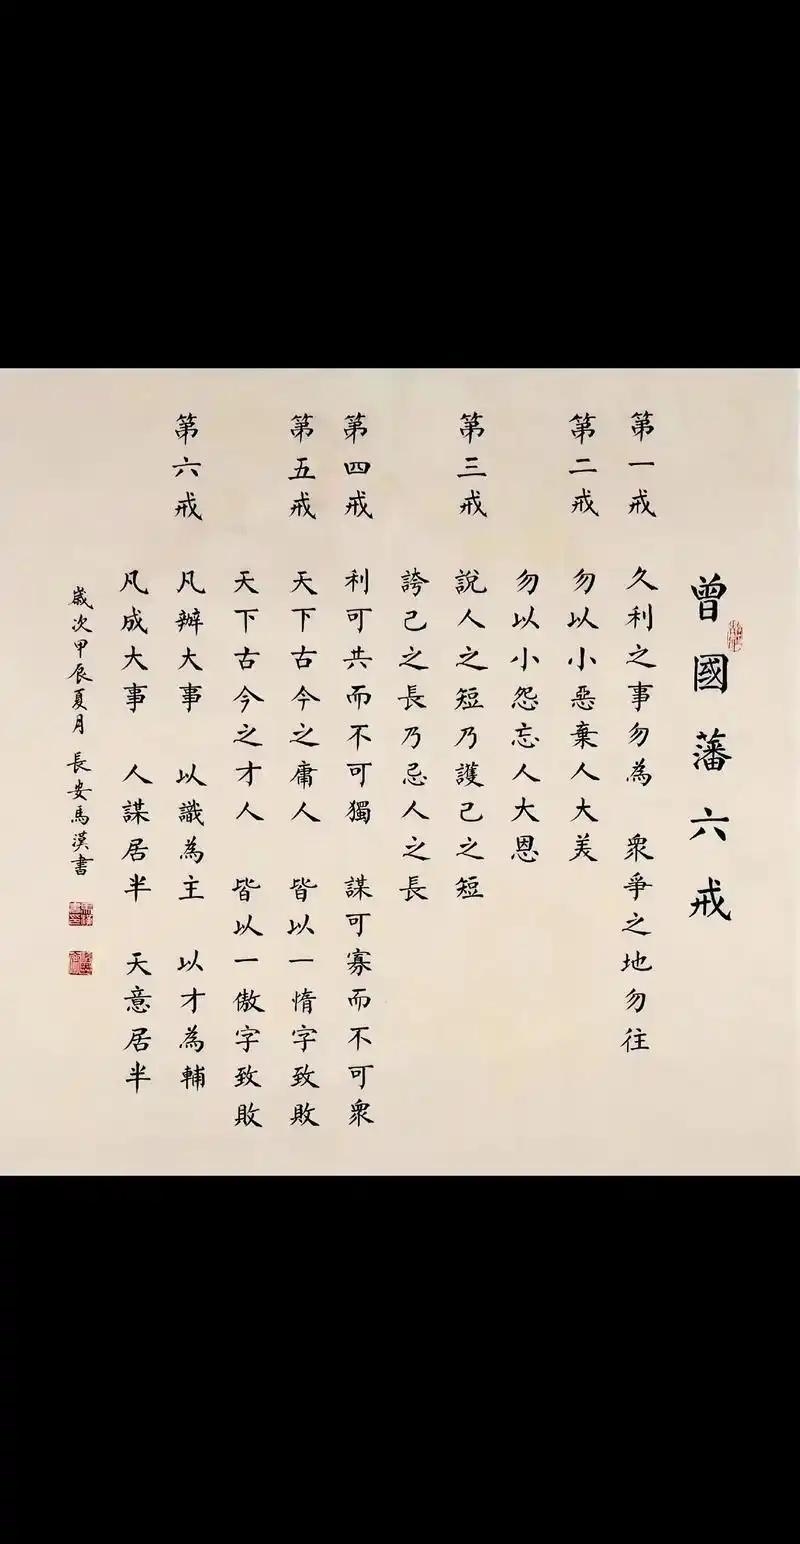 曾國藩六戒
第一戒 久利之事勿為 衆爭之地勿往
第二戒 勿以小惡棄人大美
勿以小怨忘人大恩
第三戒 說人之短乃護己之短
誇己之長乃忌人之長
第四戒 利可共而不可獨 謀可寡而不可衆
第五戒 天下古今之庸人 皆以一惰字致敗
天下古今之才人 皆以一傲字致敗
第六戒 凡辦大事 以識為主 以才為輔
凡成大事 人謀居半 天意居半
歲次甲辰夏月 長安馬漢書